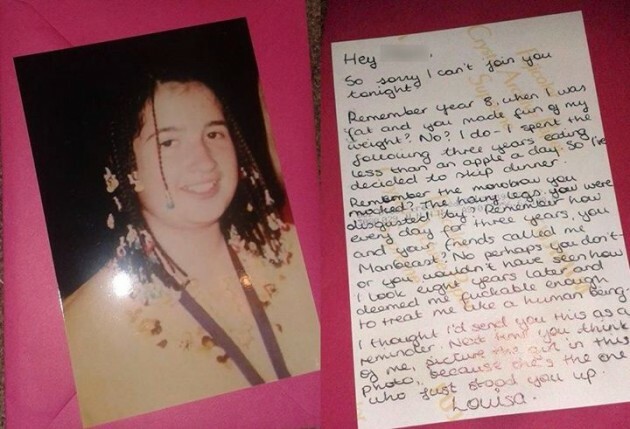 Hey
So sorry I can't join you
tonight.
Remember year 8, when I was
fat and you made fun of my
weight? No? I do - I spent the
following three years eating
less than an apple a day. So I've
decided to skip dinner.
Remember the monobrow you
mocked? The hairy legs you were
disgusted by? Remember how
every day for three years, you
and your friends called me
Manbeast? No perhaps you don't-
or you wouldn't have seen how
I look eight years later and
deemed me fuckable enough
to treat me like a human being.
I thought I'd send you this as a
reminder. Next time you think
of me, picture the girl in this
photo, because she's the one
who just stood you up.
Louisa.